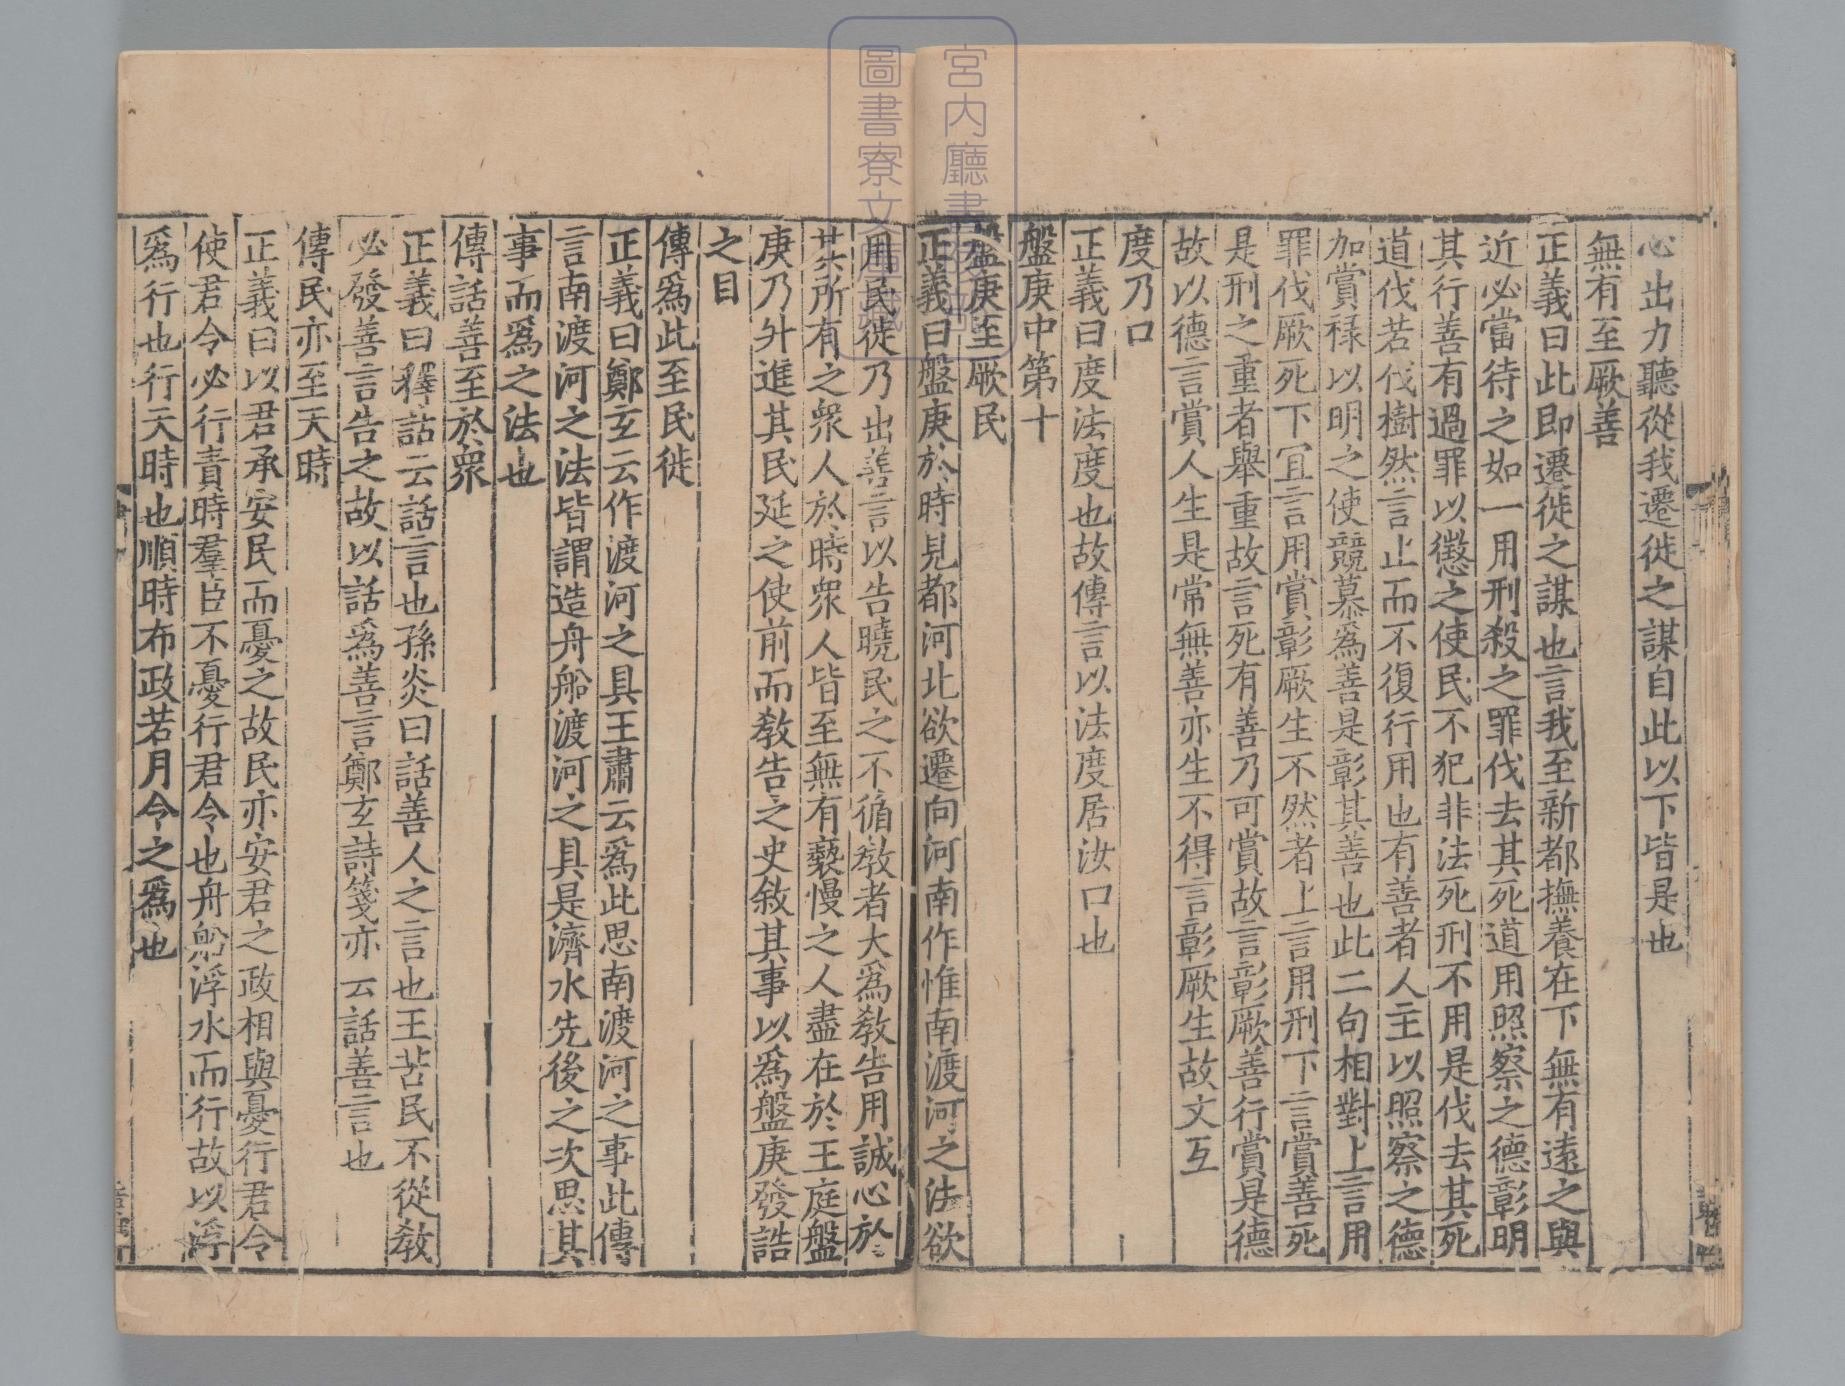 心出力聽從我遷徙之謀自此以下皆是也
無有至厥善
正義曰此即遷徙之謀也言我至新都撫養在下無有遠之與
近必當待之如一用刑殺之罪伐去其死道用照察之德彰明
其行善有過罪以懲之使民不犯非法死刑不用是伐去其死
道伐若伐樹然言止而不復行用也有善者人主以照察之德
加賞祿以明之使競慕爲善是彰其善也此二句相對上言用
罪伐厥死下宜言用賞彰厥生不然者上言用刑下言賞善死
是刑之重者舉重故言死有善乃可賞故言彰厥善行賞是德
故以德言賞人生是常無善亦生不得言彰厥生故文互
度乃口
正義曰度法度也故傳言以法度居汝口也
盤庚中第十
盤庚至厥民
正義曰盤庚於時見都河北欲遷向河南作惟南渡河之法欲
用民徙乃出善言以告曉民之不循教者大爲教告用誠心於
其所有之衆人於時衆人皆至無有褻慢之人盡在於王庭盤
庚乃升進其民延之使前而教告之史敘其事以爲盤庚發誥
之目
傳爲此至民徙
正義曰鄭玄云作渡河之具王肅云爲此思南渡河之事此傳
言南渡河之法皆謂造舟舩渡河之具是濟水先後之次思其
事而爲之法也
傳話善至於衆
正義曰釋詁云話言也孫炎曰話善人之言也王苦民不從教
必發善言告之故以話爲善言鄭玄詩箋亦云話善言也
傳民亦至天時
正義曰以君承安民而憂之故民亦安君之政相與憂行君令
使君令必行責時羣臣不憂行君令也舟舩浮水而行故以浮
爲行也行天時也順時布政若月令之爲也
宮内廳書
圖書寮文